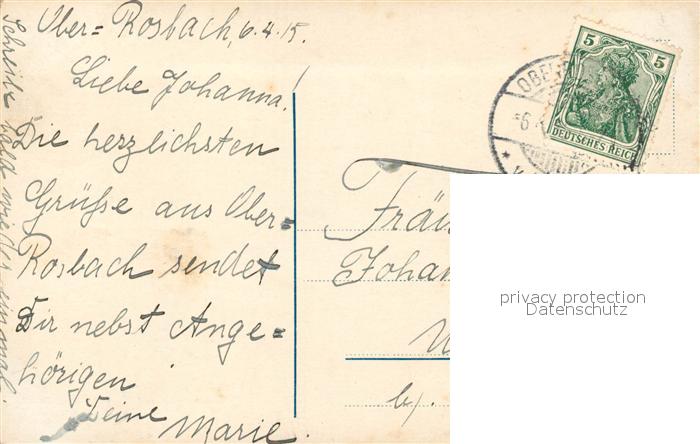 Ober= Rosbach, 6.4.15.
Liebe Johanna.
Die herzlichsten
Grüsse aus Ober=
Rosbach sendet
Dir nebst Ange=
hörigen
Deine
Marie.
Schreibe bald wieder einmal.
5 5
DEUTSCHES REICH
OBER
6.
Fräu
Johan
b/.
privacy protection
Datenschutz